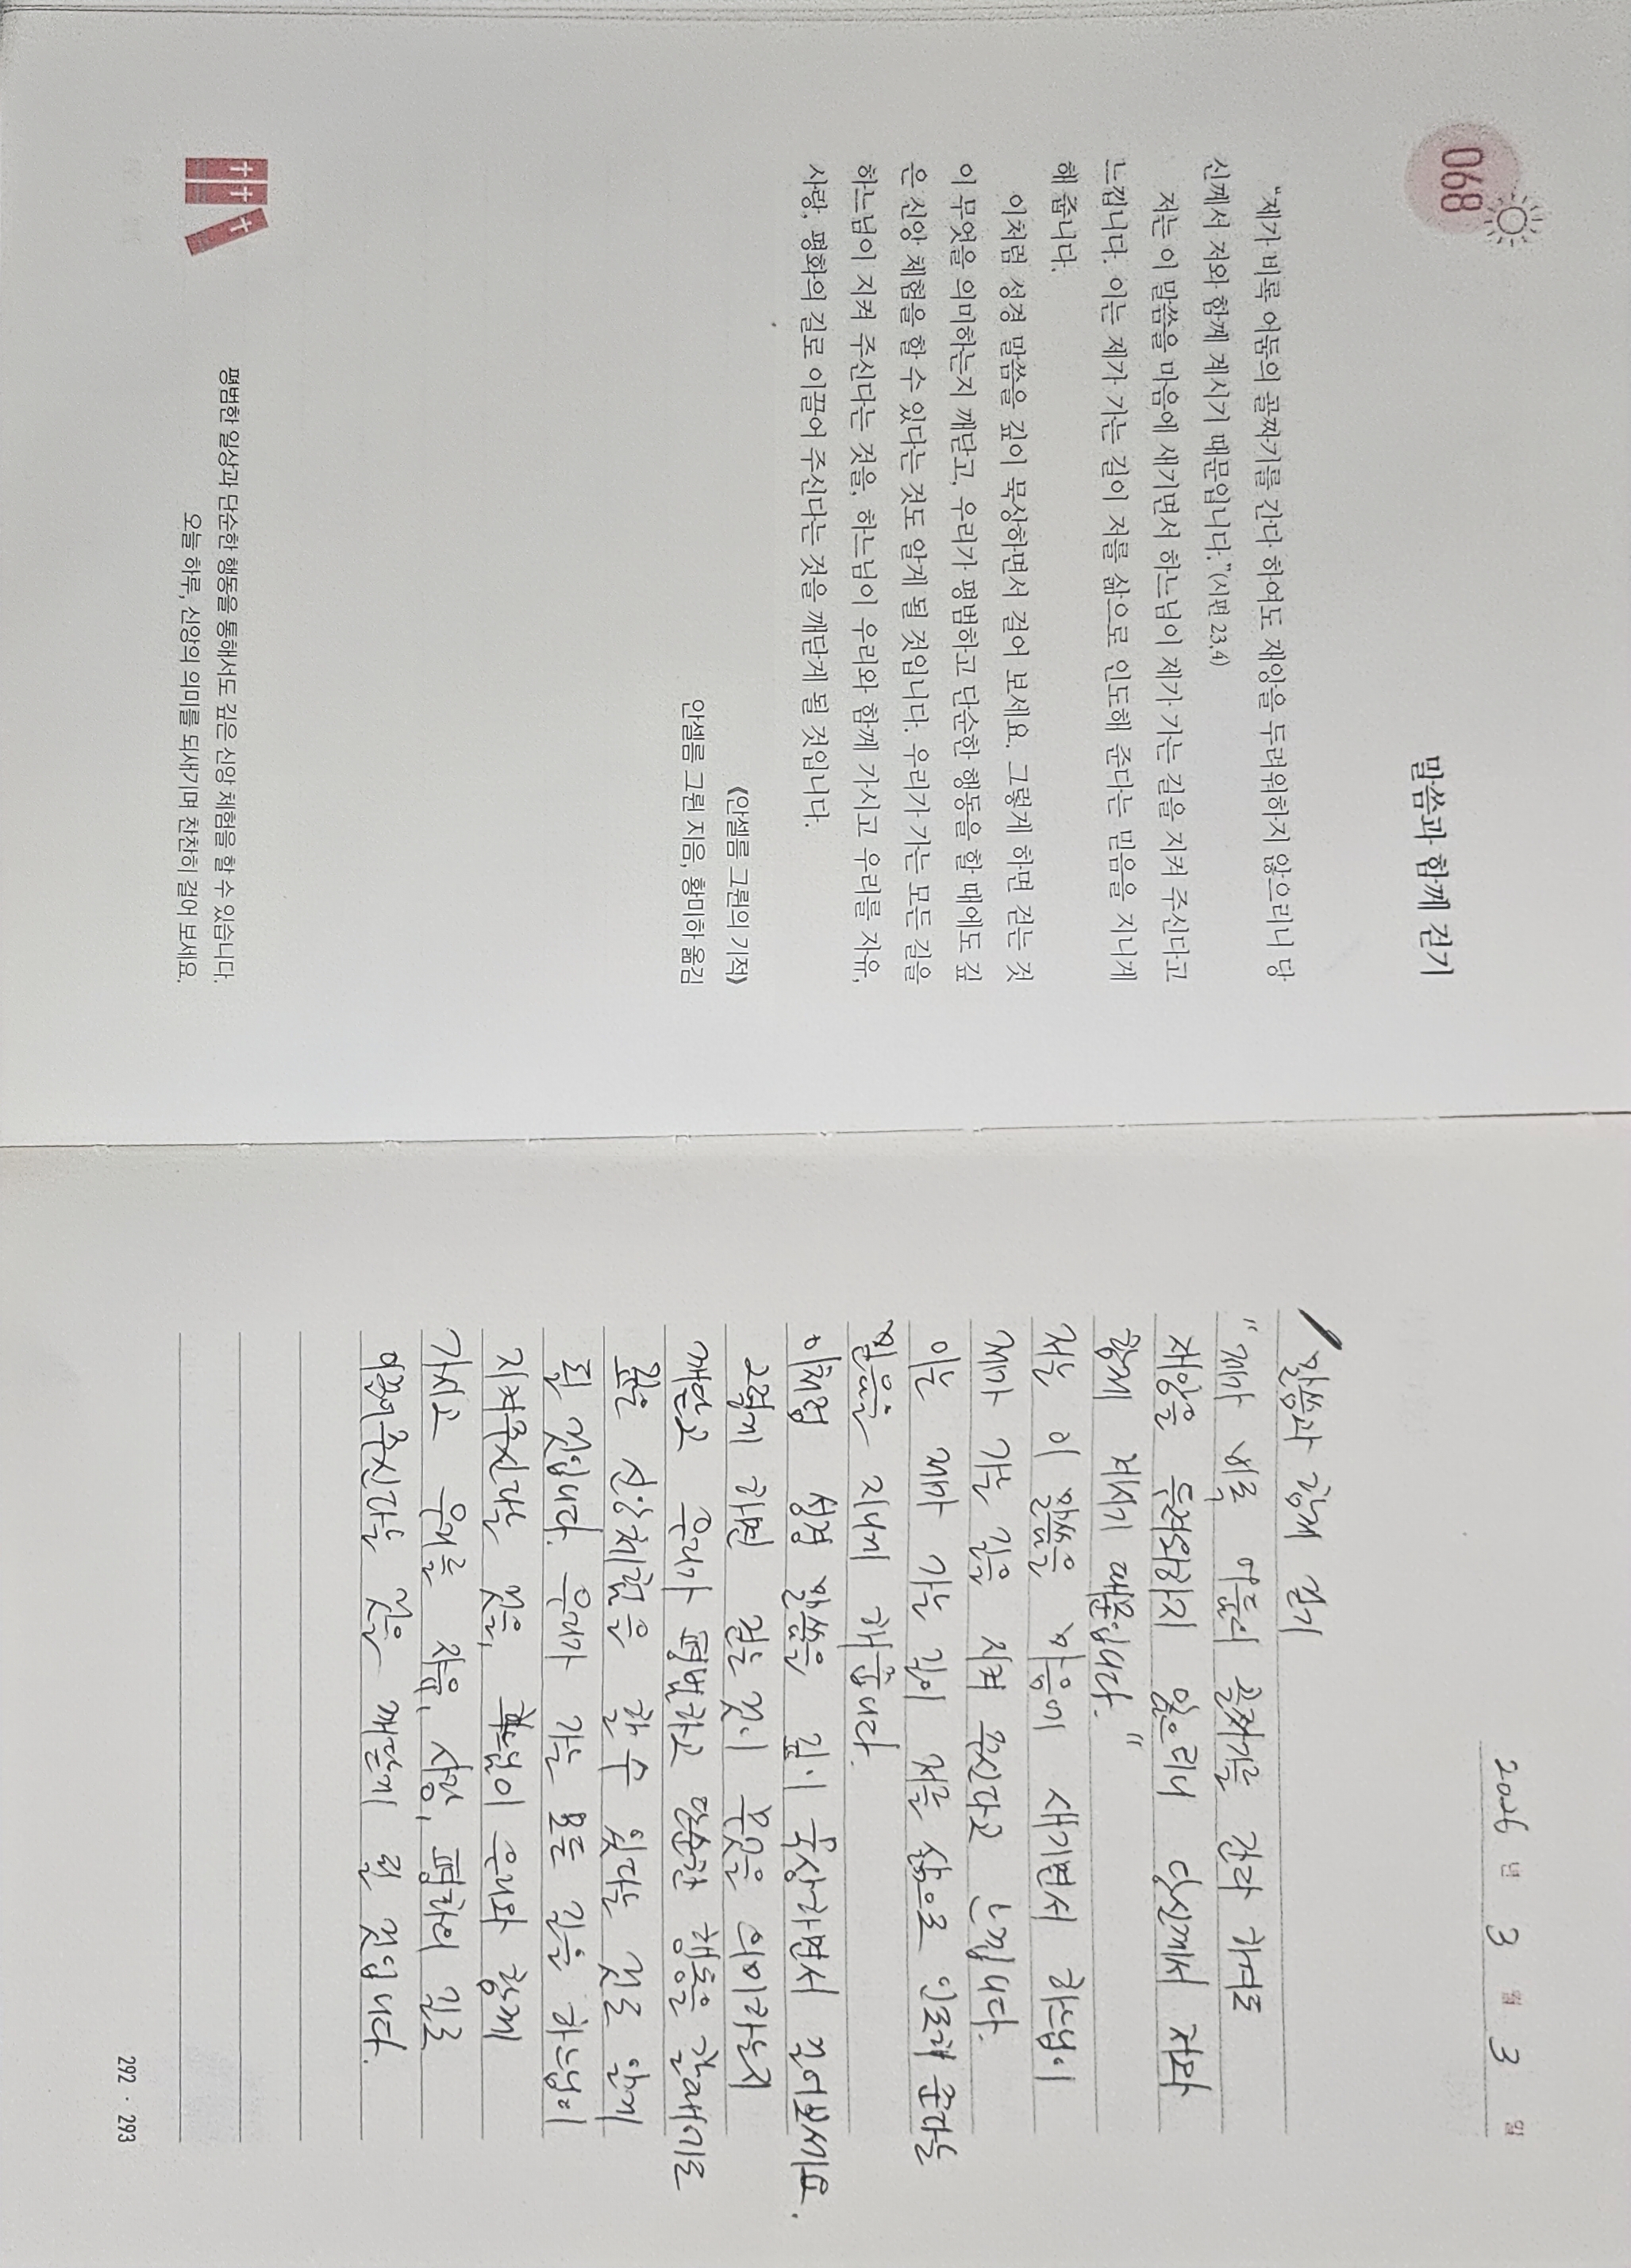 068
말씀과 함께 걷기
“제가 비록 어둠의 골짜기를 간다 하여도 재앙을 두려워하지 않으리니 당
신께서 저와 함께 계시기 때문입니다.”(시편 23,4)
저는 이 말씀을 마음에 새기면서 하느님이 제가 가는 길을 지켜 주신다고
느낍니다. 이는 제가 가는 길이 저를 삶으로 인도해 준다는 믿음을 지니게
해 줍니다.
이처럼 성경 말씀을 깊이 묵상하면서 걸어 보세요. 그렇게 하면 걷는 것
이 무엇을 의미하는지 깨닫고, 우리가 평범하고 단순한 행동을 할 때에도 깊
은 신앙 체험을 할 수 있다는 것도 알게 될 것입니다. 우리가 가는 모든 길을
하느님이 지켜 주신다는 것을, 하느님이 우리와 함께 가시고 우리를 자유,
사랑, 평화의 길로 이끌어 주신다는 것을 깨닫게 될 것입니다.
《안셀름 그륀의 기적》
안셀름 그륀 지음, 황미하 옮김
평범한 일상과 단순한 행동을 통해서도 깊은 신앙 체험을 할 수 있습니다.
오늘 하루, 신앙의 의미를 되새기며 찬찬히 걸어 보세요.
2026 년 3 월 3 일
말씀과 함께 걷기
“제가 비록 어둠의 골짜기를 간다 하여도
재앙을 두려워하지 않으리니 당신께서 저와
함께 계시기 때문입니다.”
저는 이 말씀을 마음에 새기면서 하느님이
제가 가는 길을 지켜 주신다고 느낍니다.
이는 제가 가는 길이 저를 삶으로 인도해 준다는
믿음을 지니게 해 줍니다.
이처럼 성경 말씀을 깊이 묵상하면서 걸어보세요.
그렇게 하면 걷는 것이 무엇을 의미하는지
깨닫고 우리가 평범하고 단순한 행동을 할때에도
깊은 신앙체험을 할 수 있다는 것도 알게
될 것입니다. 우리가 가는 모든 길을 하느님이
지켜주신다는 것을, 하느님이 우리와 함께
가시고 우리를 자유, 사랑, 평화의 길로
이끌어주신다는 것을 깨닫게 될 것입니다.
292 · 293